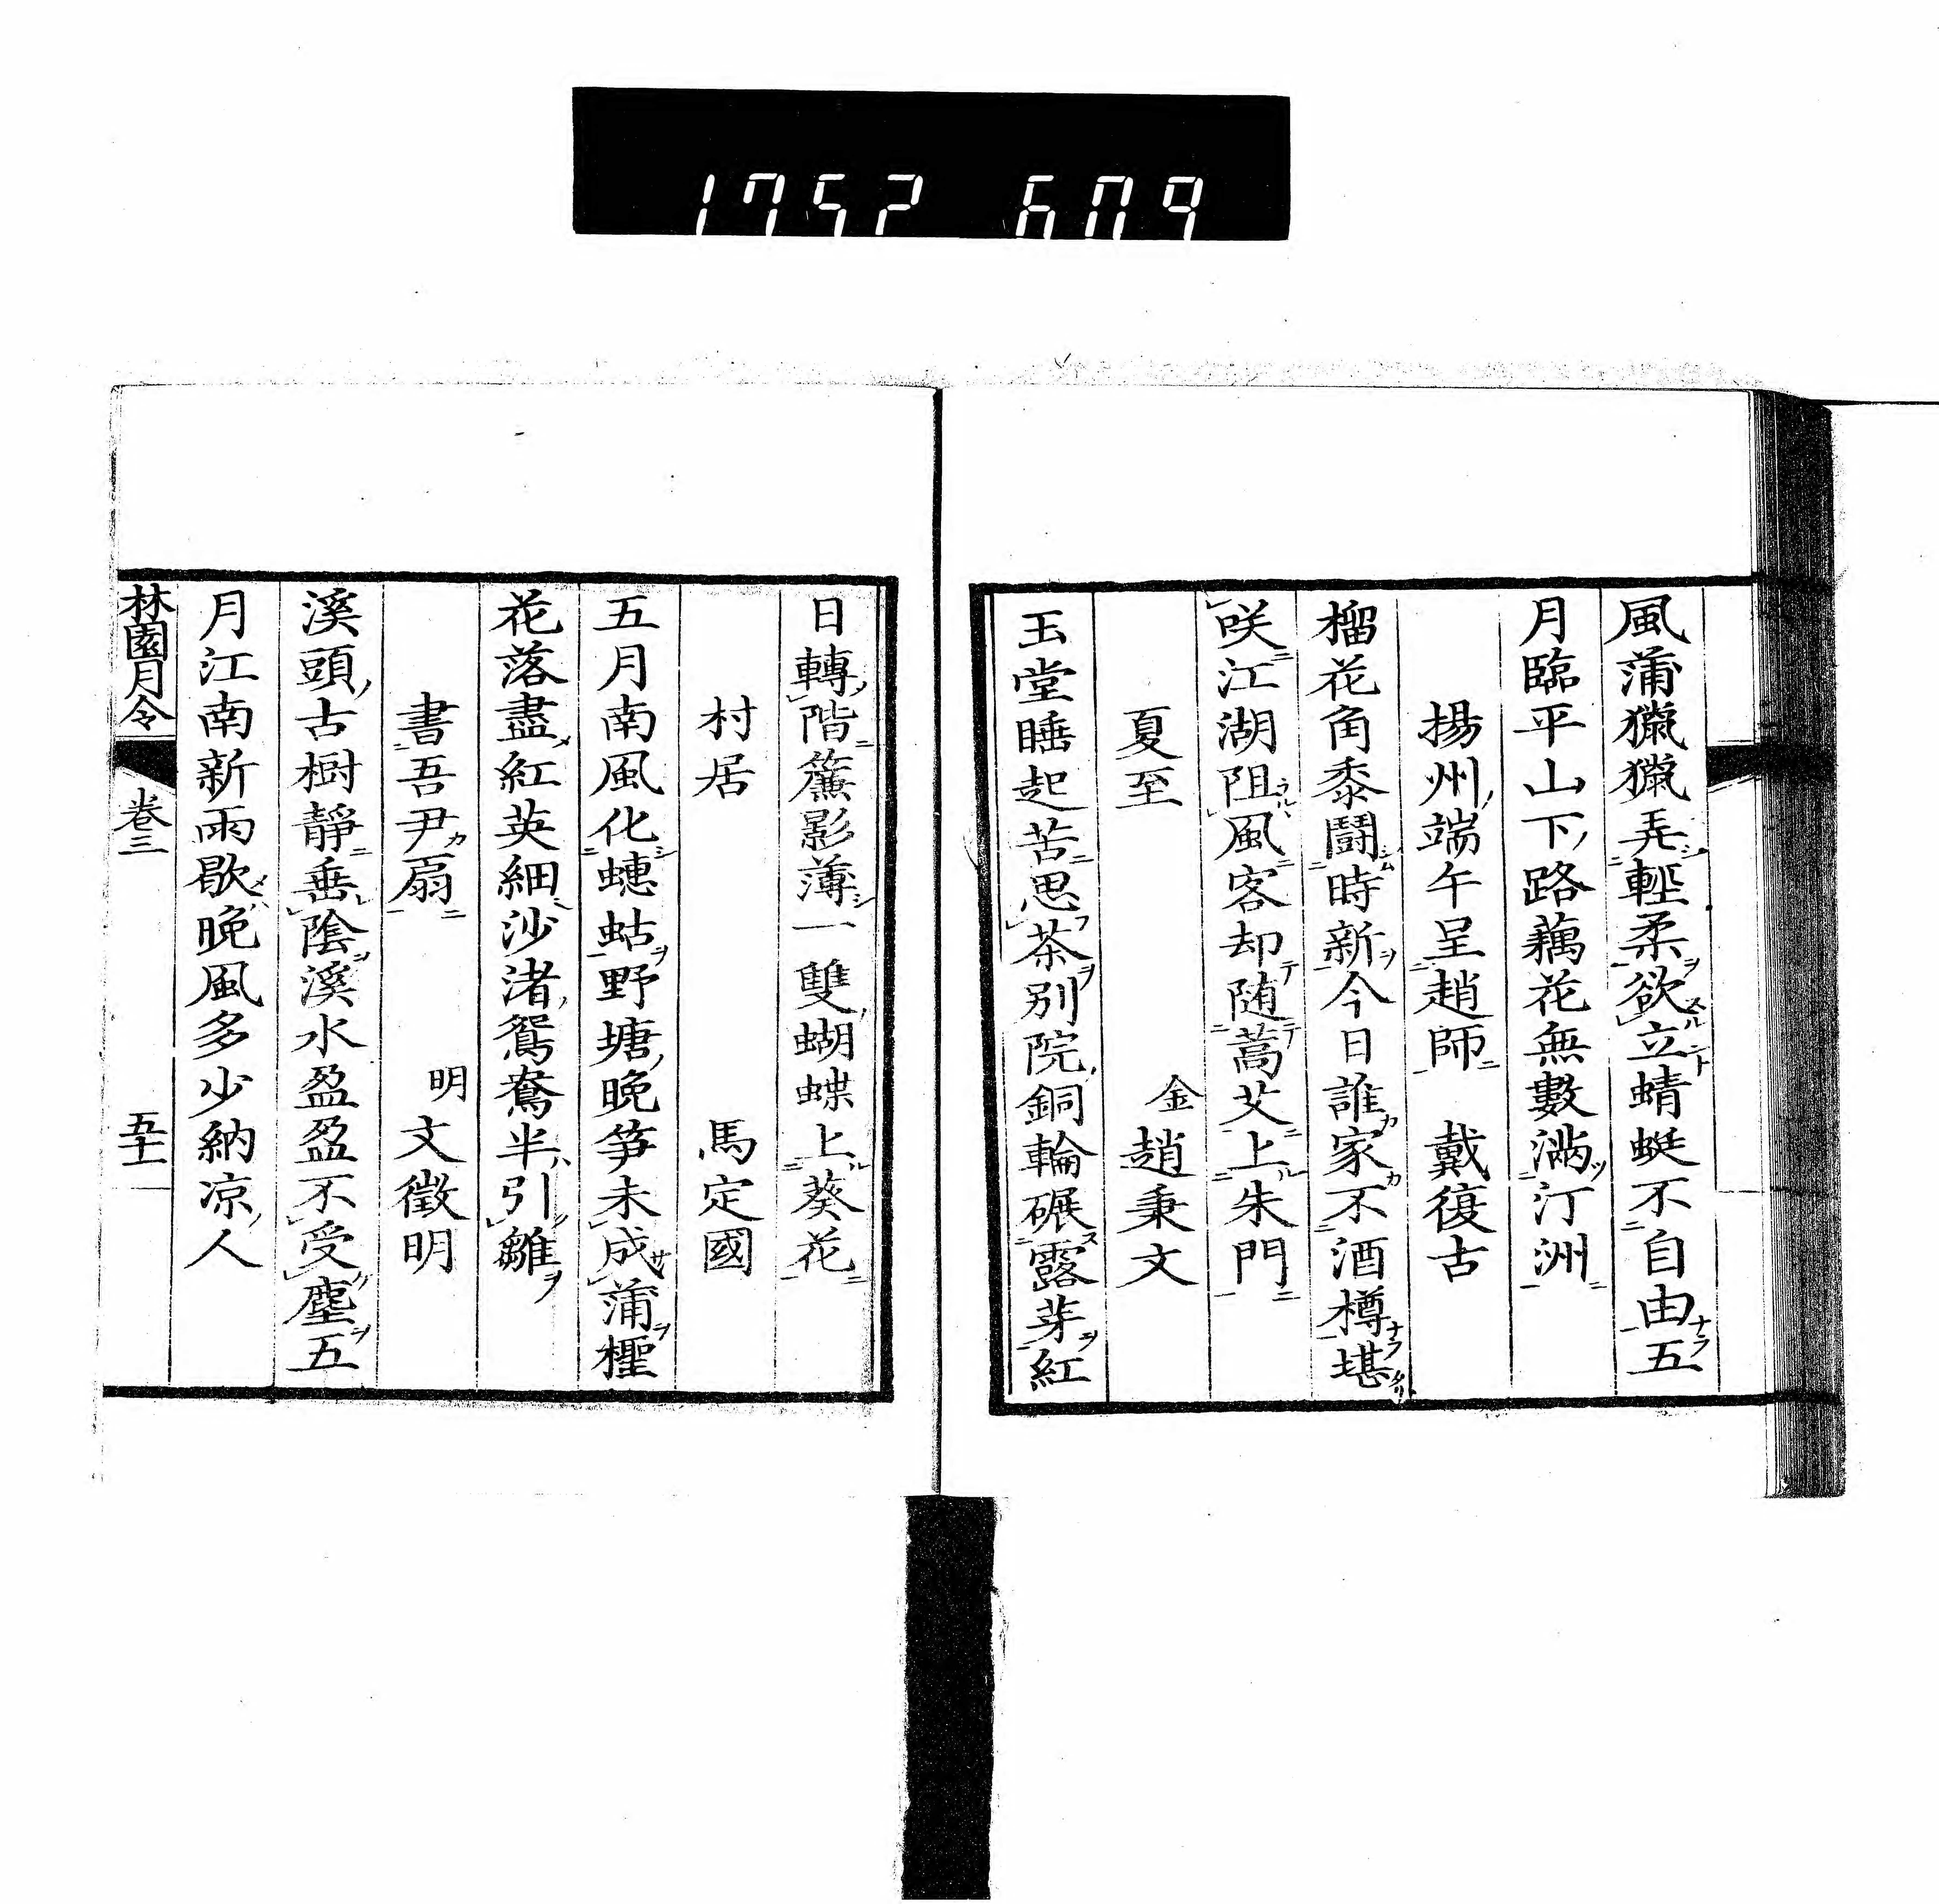 1752 609
風蒲獵獵弄輕柔欲立蜻蜓不自由五
月臨平山下路藕花無數滿汀洲
揚州端午呈趙師 戴復古
榴花角黍鬪時新今日誰家不酒樽堪
咲江湖阻風客却随蒿艾上朱門
夏至 金 趙秉文
玉堂睡起苦思茶別院銅輪碾露芽紅
日轉階簾影薄一雙蝴蝶上葵花
村居 馬定國
五月南風化蟪蛄野塘晩笋未成蒲檉
花落盡紅英細沙渚鴛鴦半引雛
書吾尹扇 明 文徵明
溪頭古樹靜垂陰溪水盈盈不受塵五
月江南新雨歇晩風多少納凉人
林園月令 卷三 五十一